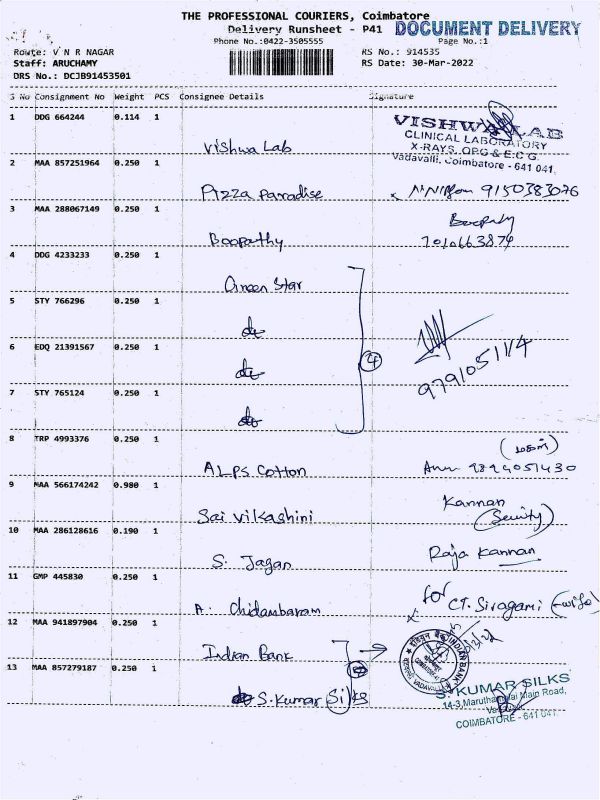 THE PROFESSIONAL COURIERS, Coimbatore
Delivery Runsheet - P41
DOCUMENT DELIVERY
Phone No.:0422-3505555
Page No.:1
Route: V N R NAGAR
RS No.: 914535
Staff: ARUCHAMY
RS Date: 30-Mar-2022
DRS No.: DCJB91453501
S No Consignment No Weight PCS Consignee Details Signature
1 DDG 664244 0.114 1
VISHWA LAB
CLINICAL LABORATORY
X-RAYS, OPG & E.C.G.
Vadavalli, Coimbatore - 641 041.
Vishwa Lab
2 MAA 857251964 0.250 1
Pizza Paradise 9150383076
3 MAA 288067149 0.250 1
Boopathy
Boopathy 7010663874
4 DDG 4233233 0.250 1
Queen Star
5 STY 766296 0.250 1
do
6 EDQ 21391567 0.250 1
do 4
9791051114
7 STY 765124 0.250 1
do
8 TRP 4993376 0.250 1
ALPS Cotton
9 MAA 566174242 0.980 1
Kannan
Sai Vikashini
10 MAA 286128616 0.190 1
S. Jagan Raja Kannan
11 GMP 445830 0.250 1
A. Chidambaram for CT. Sivagami (wife)
12 MAA 941897904 0.250 1
Indian Bank
INDIAN BANK
13 MAA 857279187 0.250 1
S. Kumar Silks
S. KUMAR SILKS
14-3, Maruthamalai Main Road,
Vadavalli,
COIMBATORE - 641 041.